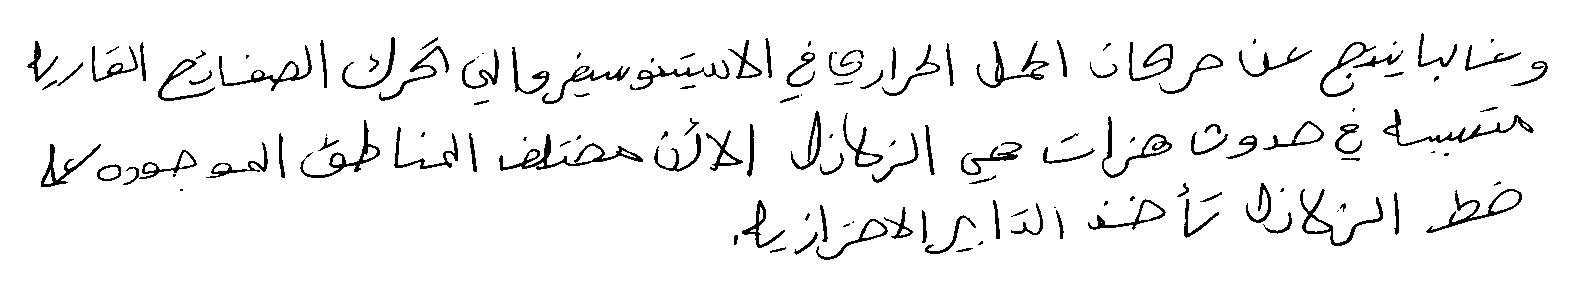 وغالبا ينتج عن حركات الحمل الحراري في الاستينوسفير والتي تحرك الصفائح القارية
متسببه في حدوث هزات هي الزلازل الأن مختلف المناطق الموجوده على
خط الزلازل تأخذ التدابير الاحترازية.